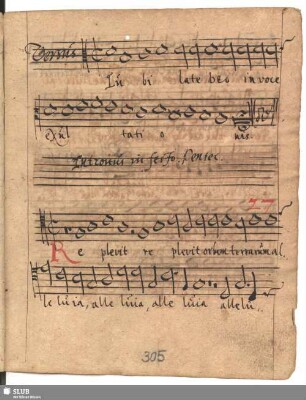 Versus
Iu bi late deo in voce
exul tati o nis.
Introitus in festo Pentec
77
Re plevit re plevit orbem terrarum al.
le luia, alle luia, alle luia allelu..
305
SLUB